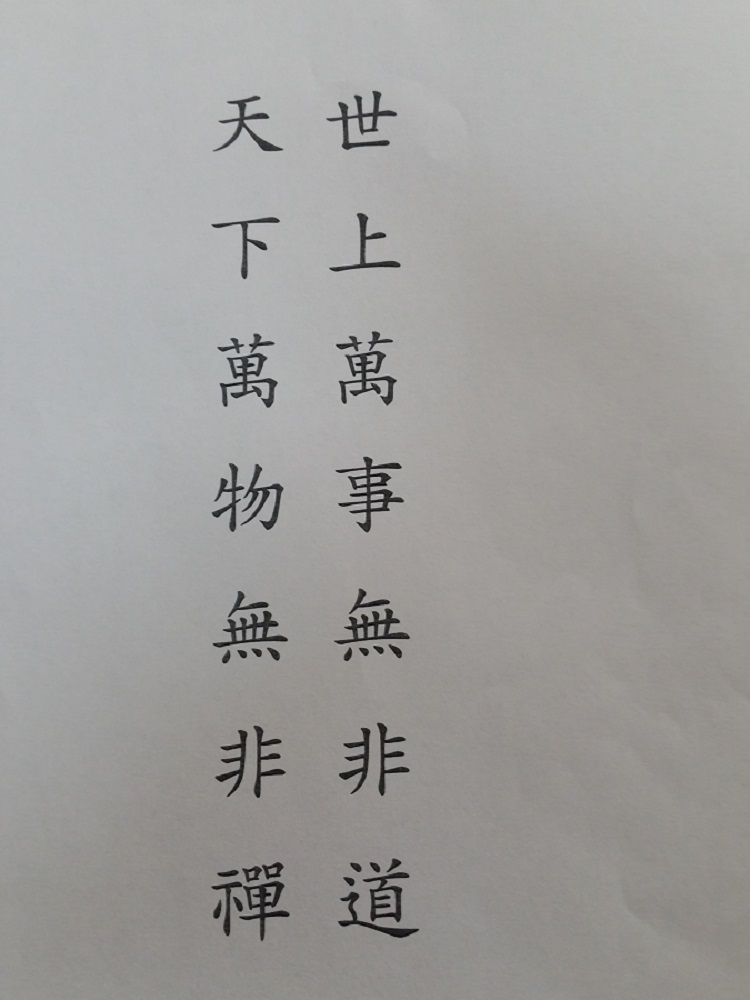 世上萬事無非道
天下萬物無非禪